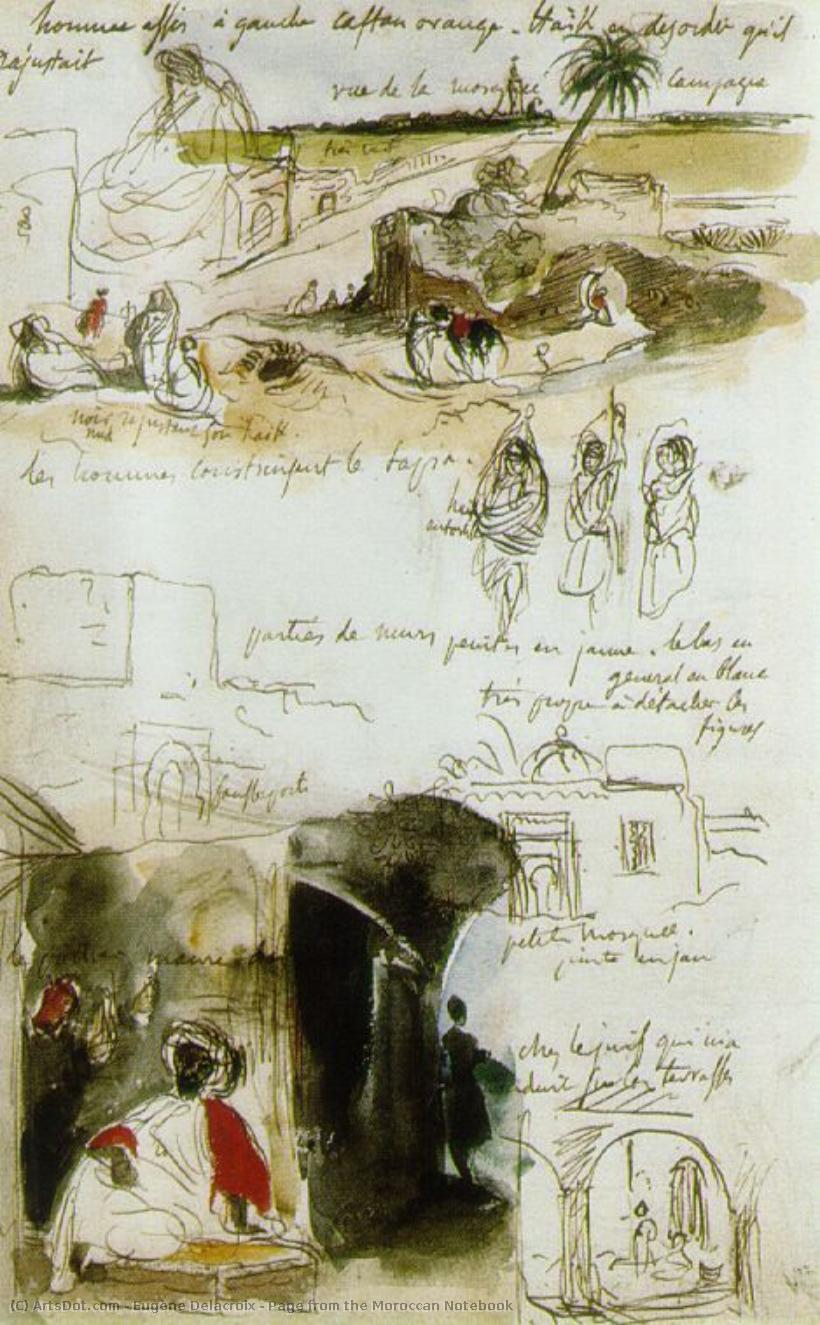 homme assis à gauche caftan orange. Haïk en desordre qu'il
rajustait
vue de la mosquée
Campagne
noir rajustant son Haïk.
nud
les hommes construisent le tapia.
parties de murs peintes en jaune. le bas en
general en blanc
très propre à détacher les
figures
petite mosquée.
peinte en jau
chez le juif qui m'a
duit sur les terrasses
(C) ArtsDot.com - Eugène Delacroix - Page from the Moroccan Notebook